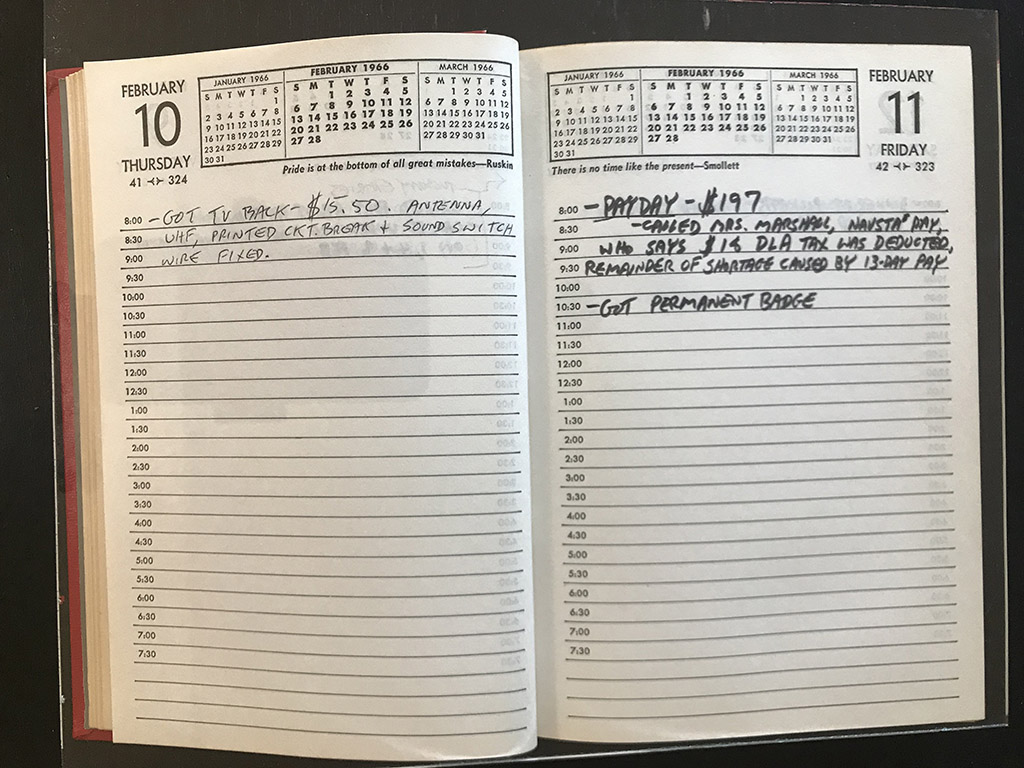 FEBRUARY
10
THURSDAY
41 ⤙ 324
JANUARY 1966
S M T W T F S
1
2 3 4 5 6 7 8
9 10 11 12 13 14 15
16 17 18 19 20 21 22
23 24 25 26 27 28 29
30 31
FEBRUARY 1966
S M T W T F S
1 2 3 4 5
6 7 8 9 10 11 12
13 14 15 16 17 18 19
20 21 22 23 24 25 26
27 28
MARCH 1966
S M T W T F S
1 2 3 4 5
6 7 8 9 10 11 12
13 14 15 16 17 18 19
20 21 22 23 24 25 26
27 28 29 30 31
Pride is at the bottom of all great mistakes—Ruskin
8:00 - GOT TV BACK - $15.50. ANTENNA,
8:30 UHF, PRINTED CKT. BREAK + SOUND SWITCH
9:00 WIRE FIXED.
9:30
10:00
10:30
11:00
11:30
12:00
12:30
1:00
1:30
2:00
2:30
3:00
3:30
4:00
4:30
5:00
5:30
6:00
6:30
7:00
7:30
JANUARY 1966
S M T W T F S
1
2 3 4 5 6 7 8
9 10 11 12 13 14 15
16 17 18 19 20 21 22
23 24 25 26 27 28 29
30 31
FEBRUARY 1966
S M T W T F S
1 2 3 4 5
6 7 8 9 10 11 12
13 14 15 16 17 18 19
20 21 22 23 24 25 26
27 28
MARCH 1966
S M T W T F S
1 2 3 4 5
6 7 8 9 10 11 12
13 14 15 16 17 18 19
20 21 22 23 24 25 26
27 28 29 30 31
FEBRUARY
11
FRIDAY
42 ⤙ 323
There is no time like the present—Smollett
8:00 - PAYDAY - $197
8:30 - CALLED MRS. MARSHALL, NAVSTA PAY,
9:00 WHO SAYS $14 DLA TAX WAS DEDUCTED,
9:30 REMAINDER OF SHORTAGE CAUSED BY 13-DAY PAY
10:00
10:30 - GOT PERMANENT BADGE
11:00
11:30
12:00
12:30
1:00
1:30
2:00
2:30
3:00
3:30
4:00
4:30
5:00
5:30
6:00
6:30
7:00
7:30